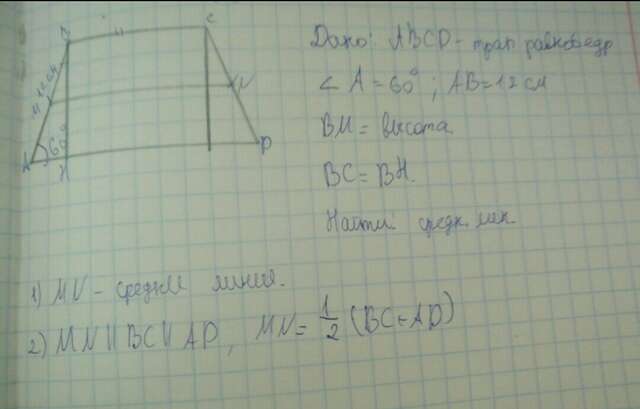 B
C
12 см
M
N
60°
A
H
D
Дано: ABCD - трап равнобедр
∠ A = 60° ; AB = 12 см
BH = высота
BC = BH.
Найти средн. лин.
1) MN - средняя линия.
2) MN || BC || AD, MN = 1/2 (BC + AD)